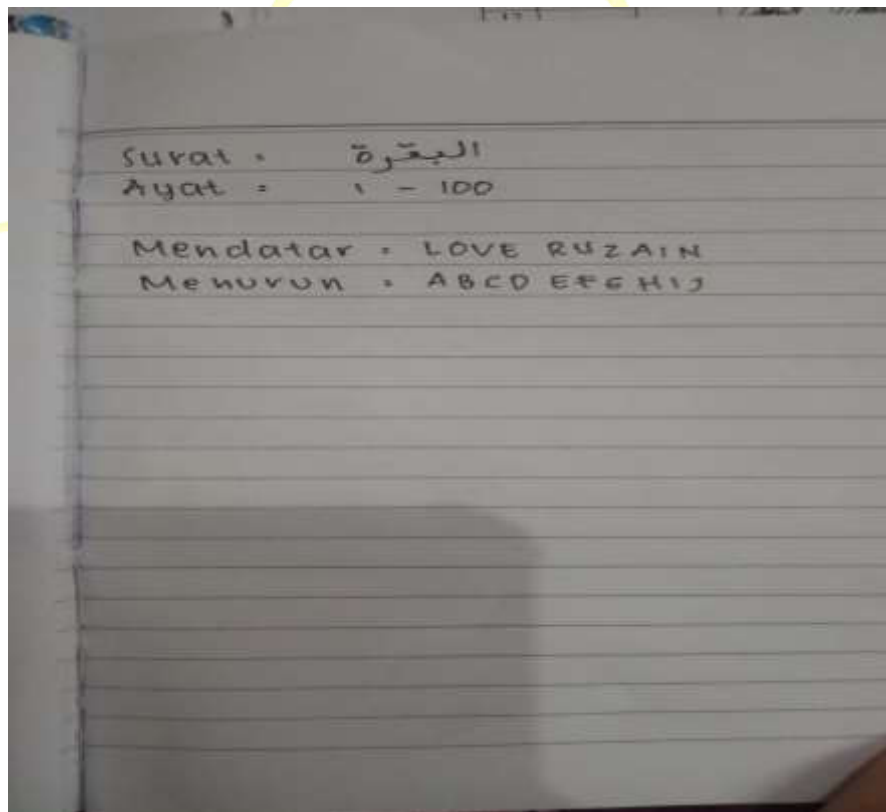 Surat : البقرة
Ayat : 1 - 100
Mendatar : LOVE RUZAIN
Menurun : ABCD EFGHIJ